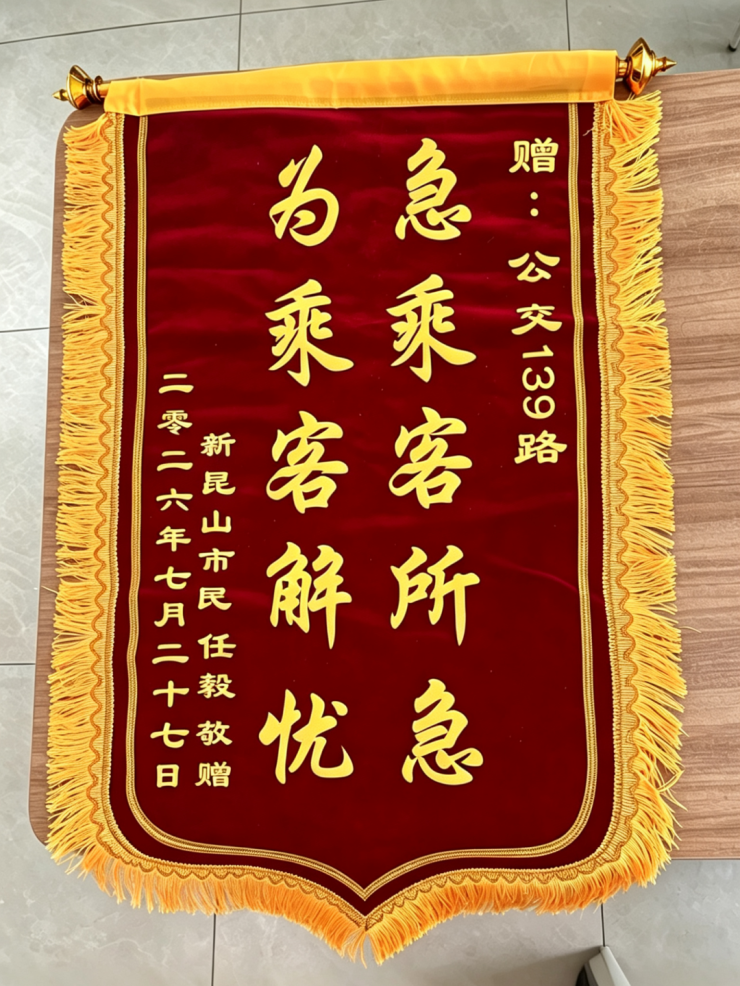 赠：公交139路
急乘客所急
为乘客解忧
新昆山市民 任毅 敬赠
二零二六年七月二十七日